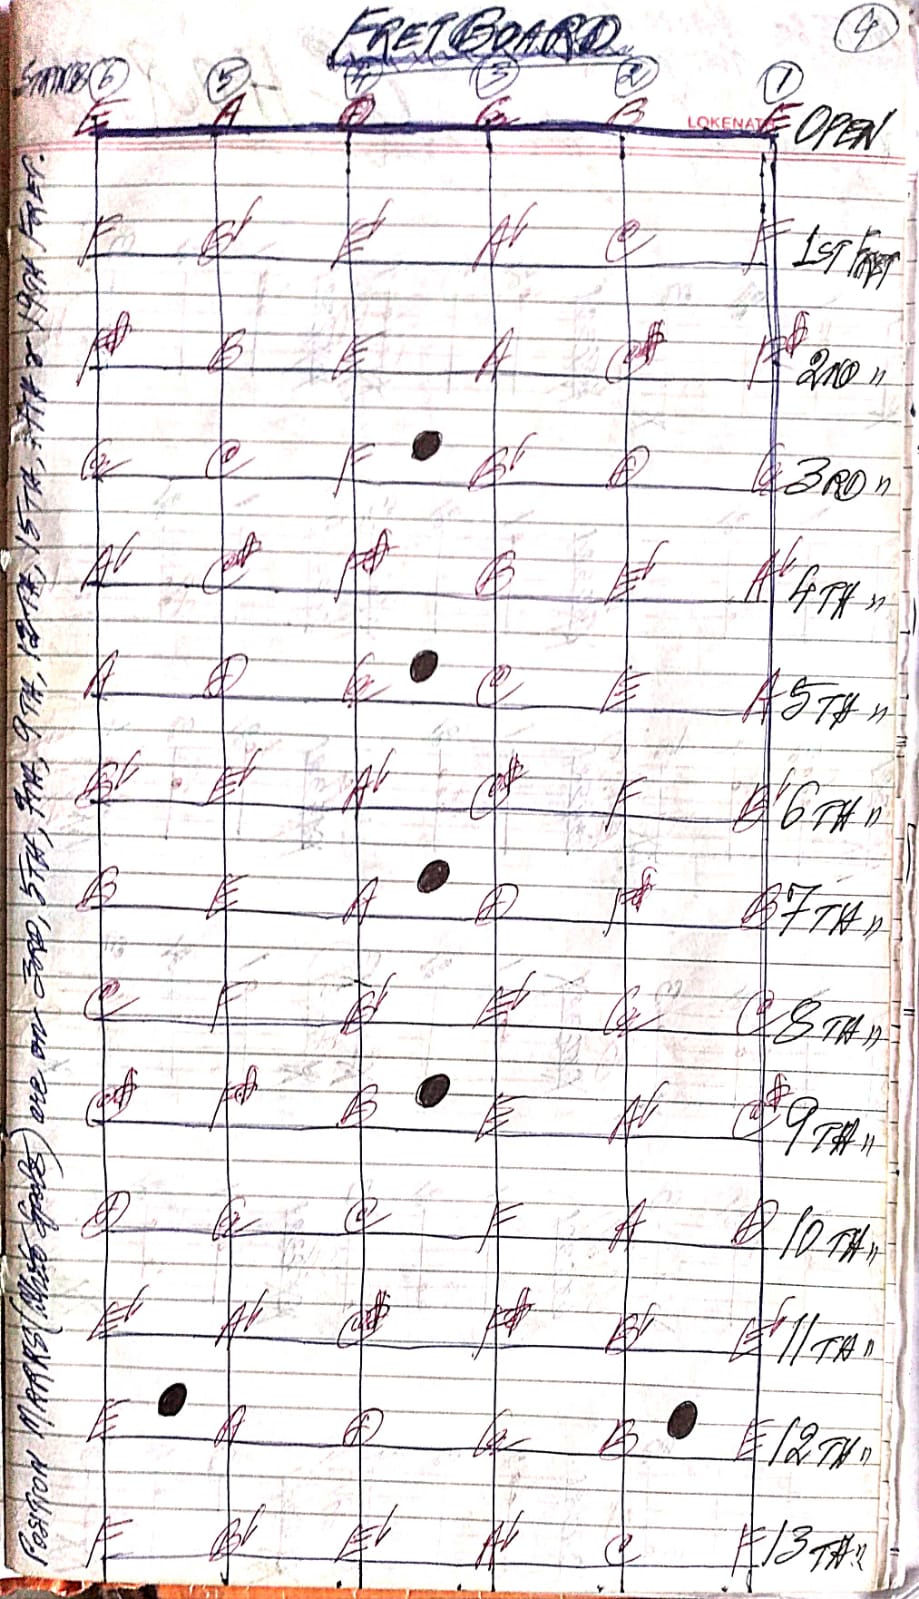 FRETBOARD
4
STRINGS 6 5 4 3 2 1
E A D G B E OPEN
LOKENATH
F B♭ E♭ A♭ C F 1ST FRET
F# B E A C# F# 2ND "
G C F B♭ D G 3RD "
A♭ C# F# B E♭ A♭ 4TH "
A D G C E A 5TH "
B♭ E♭ A♭ C# F B♭ 6TH "
B E A D F# B 7TH "
C F B♭ E♭ G C 8TH "
C# F# B E A♭ C# 9TH "
D G C F A D 10TH "
E♭ A♭ C# F# B♭ E♭ 11TH "
E A D G B E 12TH "
F B♭ E♭ A♭ C F 13TH "
POSITION MARKS (White Spots) are on 3RD, 5TH, 7TH, 9TH, 12TH, 15TH, & 19TH FRET.